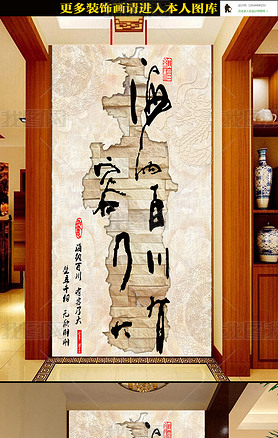 更多装饰画请进入本人图库
海纳百川有
容乃大
海纳百川 有容乃大
壁立千仞 无欲则刚